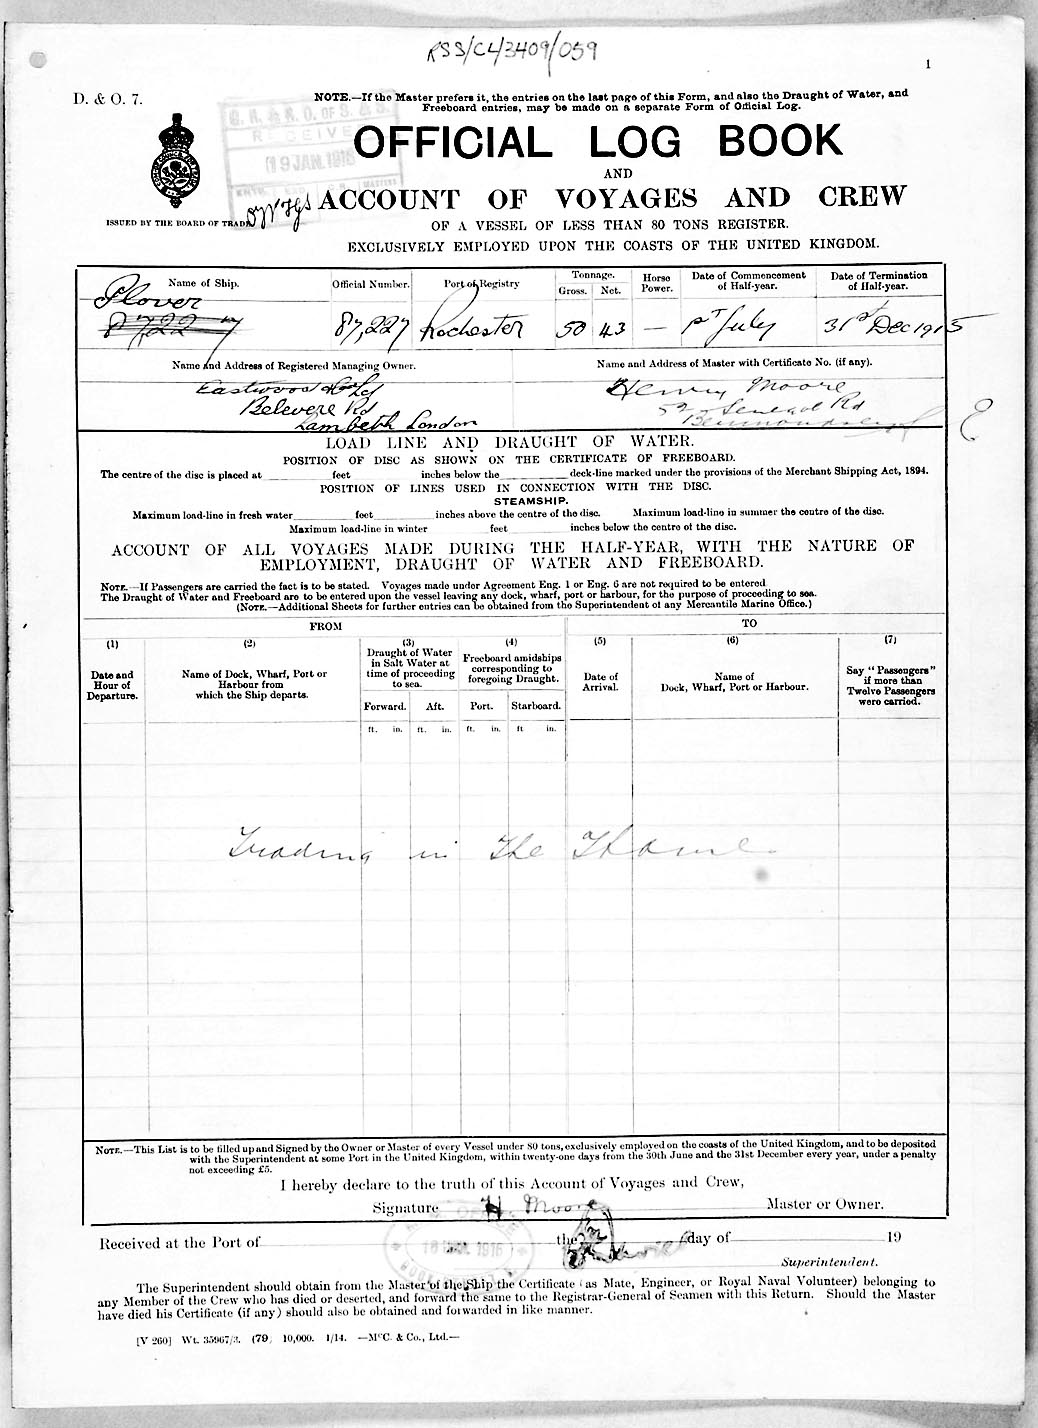 RSS/CL/3409/059
1
D. & O. 7.
NOTE.—If the Master prefers it, the entries on the last page of this Form, and also the Draught of Water, and
Freeboard entries, may be made on a separate Form of Official Log.
RECEIVE
19 JAN. 1916
OFFICIAL LOG BOOK
AND
ACCOUNT OF VOYAGES AND CREW
ISSUED BY THE BOARD OF TRADE
OF A VESSEL OF LESS THAN 80 TONS REGISTER.
EXCLUSIVELY EMPLOYED UPON THE COASTS OF THE UNITED KINGDOM.
Name of Ship. Official Number. Port of Registry Tonnage. Gross. Net. Horse Power. Date of Commencement of Half-year. Date of Termination of Half-year.
Plover
87227 87,227 Rochester 50 43 — 1st July 31st Dec 1915
Name and Address of Registered Managing Owner. Name and Address of Master with Certificate No. (if any).
Eastwood Ld Henry Moore
Belevere Rd 52 Senegal Rd
Lambeth London
LOAD LINE AND DRAUGHT OF WATER.
POSITION OF DISC AS SHOWN ON THE CERTIFICATE OF FREEBOARD.
The centre of the disc is placed at feet inches below the deck-line marked under the provisions of the Merchant Shipping Act, 1894.
POSITION OF LINES USED IN CONNECTION WITH THE DISC.
STEAMSHIP.
Maximum load-line in fresh water feet inches above the centre of the disc. Maximum load-line in summer the centre of the disc.
Maximum load-line in winter feet inches below the centre of the disc.
ACCOUNT OF ALL VOYAGES MADE DURING THE HALF-YEAR, WITH THE NATURE OF
EMPLOYMENT, DRAUGHT OF WATER AND FREEBOARD.
NOTE.—If Passengers are carried the fact is to be stated. Voyages made under Agreement Eng. 1 or Eng. 6 are not required to be entered
The Draught of Water and Freeboard are to be entered upon the vessel leaving any dock, wharf, port or harbour, for the purpose of proceeding to sea.
(NOTE.—Additional Sheets for further entries can be obtained from the Superintendent of any Mercantile Marine Office.)
FROM TO
(1) (2) (3) (4) (5) (6) (7)
Date and Hour of Departure. Name of Dock, Wharf, Port or Harbour from which the Ship departs. Draught of Water in Salt Water at time of proceeding to sea. Freeboard amidships corresponding to foregoing Draught. Date of Arrival. Name of Dock, Wharf, Port or Harbour. Say "Passengers" if more than Twelve Passengers were carried.
Forward. Aft. Port. Starboard.
ft. in. ft. in. ft. in. ft in.
Trading in the Thames
NOTE.—This List is to be filled up and Signed by the Owner or Master of every Vessel under 80 tons, exclusively employed on the coasts of the United Kingdom, and to be deposited
with the Superintendent at some Port in the United Kingdom, within twenty-one days from the 30th June and the 31st December every year, under a penalty
not exceeding £5.
I hereby declare to the truth of this Account of Voyages and Crew,
Signature H. Moore Master or Owner.
Received at the Port of the day of 19
Superintendent.
The Superintendent should obtain from the Master of the Ship the Certificate (as Mate, Engineer, or Royal Naval Volunteer) belonging to
any Member of the Crew who has died or deserted, and forward the same to the Registrar-General of Seamen with this Return. Should the Master
have died his Certificate (if any) should also be obtained and forwarded in like manner.
[V 260] Wt. 35967/3. (79) 10,000. 1/14. —McC. & Co., Ltd.—